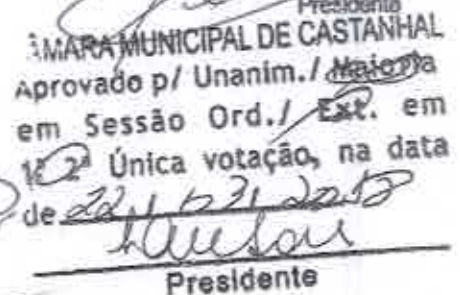 Presidenta
ÂMARA MUNICIPAL DE CASTANHAL
Aprovado p/ Unanim./ Maioria
em Sessão Ord./ Ext. em
1ª 2ª Única votação, na data
de 22 / 03 /
Presidente